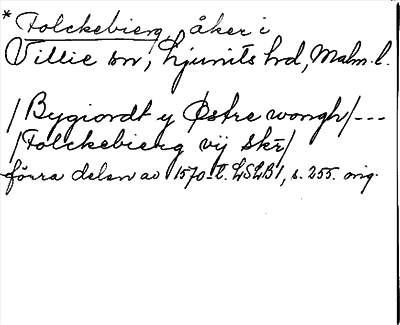 * Folckebierg, åker i
Villie sn, Ljunits hd, Malm. l.
/Bygiordt y Østre wongh/---
/Folckebierg vij skr/
förra delen av 1570-t. LSLB1, s. 255. orig.